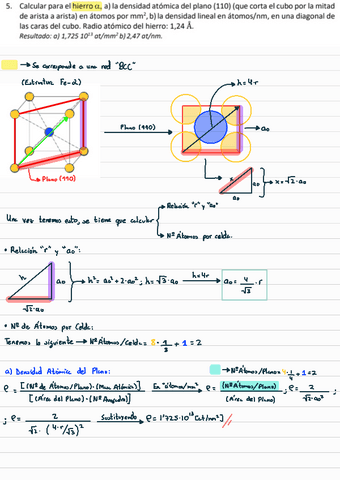 5. Calcular para el hierro α, a) la densidad atómica del plano (110) (que corta el cubo por la mitad
de arista a arista) en átomos por mm², b) la densidad lineal en átomos/nm, en una diagonal de
las caras del cubo. Radio atómico del hierro: 1,24 Å.
Resultado: a) 1,725 10¹³ at/mm² b) 2,47 at/nm.
→ Se corresponde a una red "BCC"
(Estructura Fe-α)
h=4r
Plano (110)
a₀
→ Plano (110)
x
a₀
x=√2·a₀
a₀
Una vez tenemos esto, se tiene que calcular
→ Relación "r" y "a₀"
→ Nº Átomos por celda.
• Relación "r" y "a₀":
h
a₀
→ h² = a₀² + 2·a₀² ; h = √3·a₀
h=4r
a₀ = 4/√3 · r
√2·a₀
• Nº de Átomos por Celda:
Tenemos lo siguiente → Nº Átomos/Celda = 8·1/8 + 1 = 2
a) Densidad Atómica del Plano:
→ Nº Átomos/Plano = 4·1/4 + 1 = 2
ρ = [(Nº de Átomos/Plano)·(Masa Atómica)] / [(Área del Plano)·(Nº Avogadro)]
En "átomos/mm²"
ρ = (Nº Átomos/Plano) / (Área del Plano) ; ρ = 2 / √2·a₀² ;
; ρ = 2 / √2·(4·r/√3)²
Sustituyendo
ρ = 1'725·10¹³ [at/mm²]